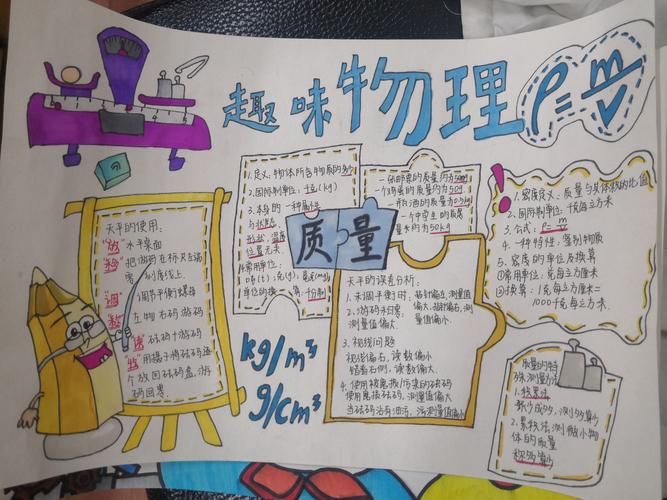 趣味物理
ρ=m/V
天平的使用:
"放" 水平桌面
把游码在标尺左端
零刻度线上.
"调" 调节平衡螺母
左物右码游码
砝码+游码
"收" 用镊子将砝码逐
个放回砝码盒,游
码回零.
1.定义:物体所含物质的多少
2.国际制单位:千克(kg)
3.本身的一种属性
与状态,
形状,温度
位置无关.
4.常用单位:
吨(t),克(g),毫克(mg)
单位的换算:千分制
一个鸡蛋的质量约为50g
一个中学生的质量
大约为50kg
质量
天平的误差分析:
1.未调平衡时:指针偏左,测量值
偏大.指针偏右,测
量值偏小.
2.游码未归零,
测量值偏大.
3.视线问题
视线偏右,读数偏小
视线偏左,读数偏大.
4.使用被磨损/污染的砝码
使用磨损砝码,测量值偏大
当砝码沾有油污,污测量值偏小
kg/m³
g/cm³
1.密度定义:质量与其体积的比值
2.国际制单位:千克每立方米
3.公式:ρ=m/V
4.一种特性:鉴别物质
5.密度的单位及换算
①常用单位:克每立方厘米
②换算:1克每立方厘米=
1000千克每立方米.
质量的特
殊测量方法
1.积累法
聚少成多,测多算少
2.累积法:测微小物
体的质量
测多算少